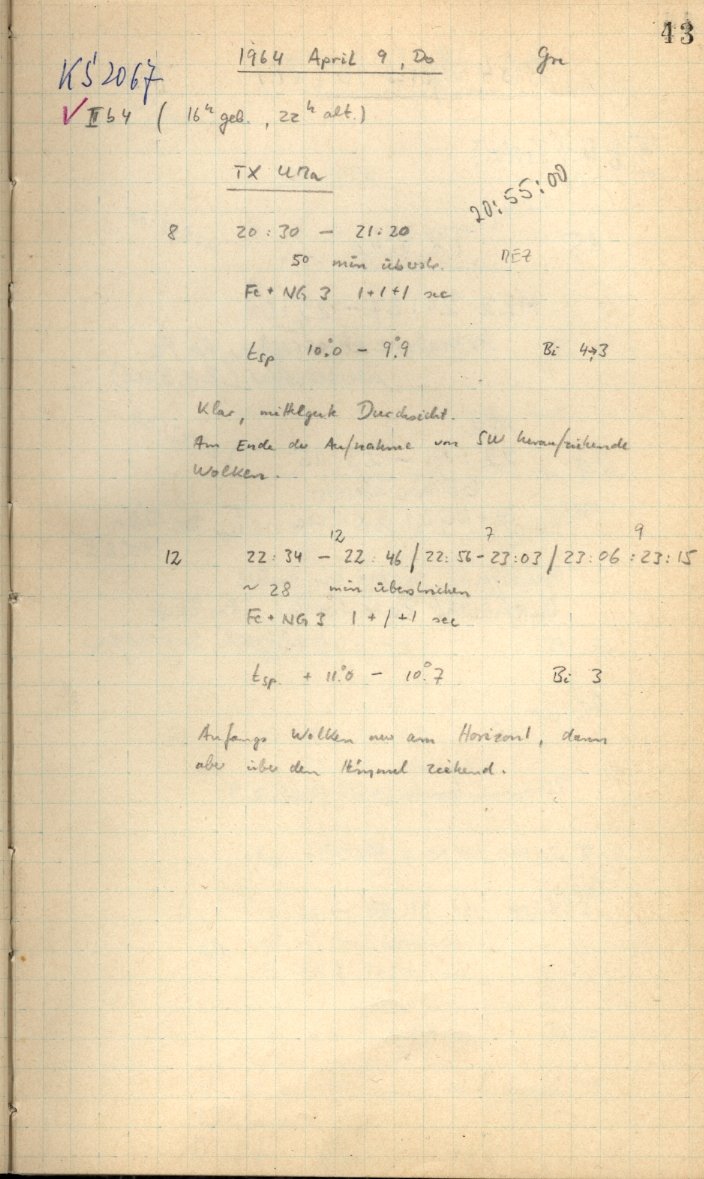 43
1964 April 9, Do Gre
KS 2067
✓ II b 4 ( 16ʰ geb., 22ʰ alt.)
TX UMa
20:55:00
8 20:30 – 21:20
50 min überstr. MEZ
Fe + NG 3 1+1+1 sec
tsp 10.°0 – 9.°9 Bi 4→3
Klar, mittelgute Durchsicht.
Am Ende der Aufnahme von SW heraufziehende
Wolken.
12 7 9
12 22:34 – 22:46 / 22:56-23:03 / 23:06:23:15
~ 28 min überstrichen
Fe + NG 3 1+1+1 sec
tsp. + 11.°0 – 10.°7 Bi 3
Anfangs Wolken nur am Horizont, dann
aber über den Himmel ziehend.